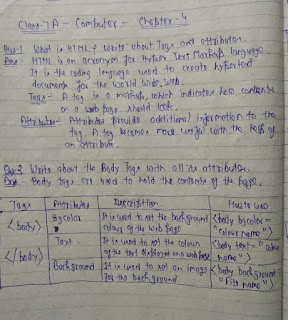 Class-7A - Computer - Chapter-4
Que-1 What is HTML? Write about Tags and attributes.
Ans- HTML is an acronym for Hyper Text Markup language.
It is the coding language used to create hypertext
document for the World Wide Web.
Tags- A tag is a markup, which indicates how contents
on a web page should look.
Attributes- Attributes provide additional information to the
tag. A tag becomes more useful with the help of
an attribute.
Que-2 Write about the Body Tags with all its attributes.
Ans- Body tags are used to hold the contents of the page.
Tags Attributes Description How to use
<body> Bgcolor It is used to set the background <body bgcolor=
colour of the web page "colour name">
</body> Text It is used to set the colour <body text="colour
of the text displayed on a web page name">
Background It is used to set an image <body background
for the background. "File name">